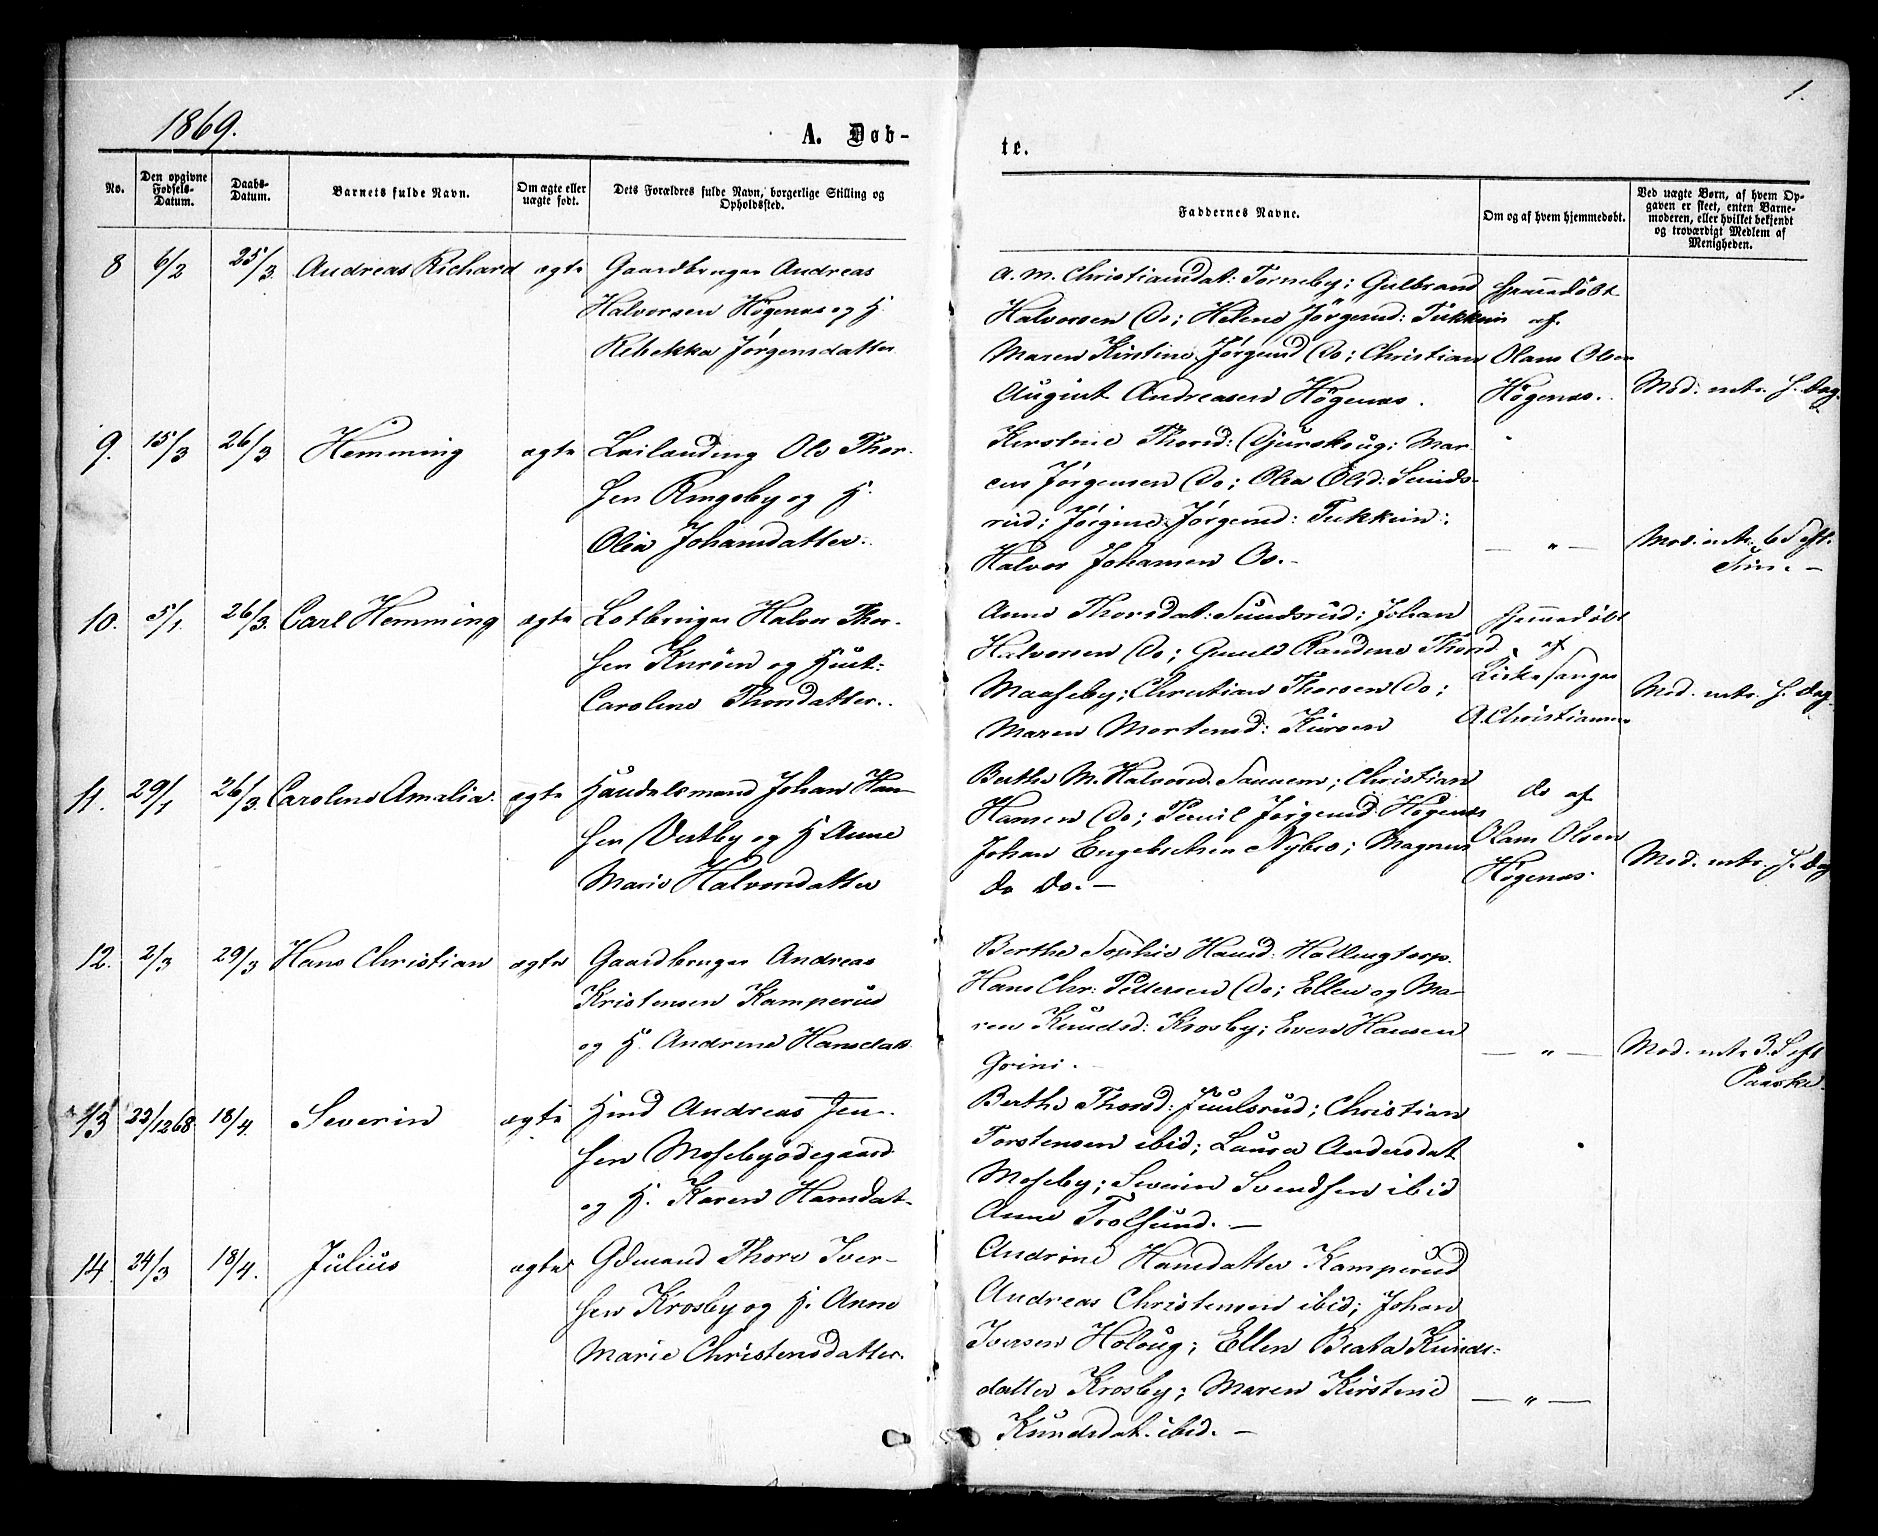 1.
1869.
A. Døb-
te.
No.
Den opgivne Fødsels-Datum.
Daabs-Datum.
Barnets fulde Navn.
Om ægte eller uægte født.
Dets Forældres fulde Navn, borgerlige Stilling og Opholdssted.
Faddernes Navne.
Om og af hvem hjemmedøbt.
Ved uægte Børn, af hvem Op-
gaven er skeet, enten Barne-
moderen, eller hvilket bekjendt
og troværdigt Medlem af
Menigheden.
8 6/2 25/3. Andreas Richard ægte Gaardbruger Andreas
Halvorsen Högenæs og H.
Rebekka Jørgensdatter
A. M. Christiansdat: Torneby; Gulbrand
Halvorsen Do; Helene Jørgensd: Tukkein
Maren Kirstine Jørgensd Do; Christian
August Andreasen Högenæs.
Hjemmedöbt
af
Olaus Olsen
Högenæs.
Mod. intr. s. Dag.
9. 15/3 26/3 Hemming ægte Leilænding Ole Thor-
sen Ringsby og H.
Olea Johansdatter.
Kirstine Thorsd: Gjurskoug; Mar-
cus Jørgensen Do; Olea Olsd: Sunds-
rud; Jørgine Jørgensd: Tukkein;
Halvor Johansen Os.-
— „ —
Mod. intr. 6 S. eft.
Trin. -
10. 5/1. 26/3. Carl Hemming ægte Lotbruger Halvor Thor-
sen Kurøen og Hust:
Caroline Thorsdatter.
Anne Thorsdat: Sundsrud; Johan
Halvorsen Do; Gunild Randine Thorsd
Maaseby; Christian Thorsen Do;
Maren Mortensd: Kurøen
Hjemmedöbt
af
Kirkesanger
A. Christiansen
Mod. intr. s. Dag.
11. 29/1 26/3. Caroline Amalia. ægte Handelsmand Johan Han-
sen Vestby og H Anne
Marie Halvorsdatter
Berthe M. Halvorsd. Sannem; Christian
Hansen Do; Pernil Jørgensd: Högenæs
Johan Engebretsen Nybro; Magnus
Do Do. —
do af
Olaus Olsen
Högenæs.
Mod. intr. s. Dag
12. 2/3 29/3 Hans Christian ægte Gaardbruger Andreas
Kristensen Kamperud
og H. Andrine Hansdat.
Berthe Sophie Hansd: Hallingtorp.
Hans Chr: Pettersen Do; Ellen og Ma-
ren Knudsd: Krosby; Even Hansen
Grini.
— „ —
Mod. intr 3. S eft
Paaske.
13 22/12 68 18/4. Severin ægte Hmd Andreas Jen-
sen Mosebyödegaard
og H. Karen Hansdat-
Berthe Thorsd: Juulsrud; Christian
Torstensen ibid; Laura Andersdat
Moseby; Severin Svendsen ibid
Anne Trolsund. —
14. 24/3 18/4. Julius ægte Gdmand Thore Iver-
sen Krosby og H. Anne
Marie Christensdatter.
Andrine Hansdatter Kamperud
Andreas Christensen ibid; Johan
Iversen Holoug; Ellen Beata Knuds-
datter Krosby; Maren Kirstine
Knudsdat. ibid. —
— „ —